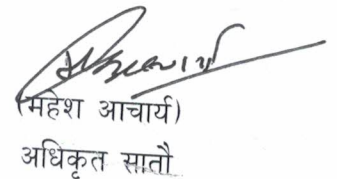 (महेश आचार्य)
अधिकृत सातौ